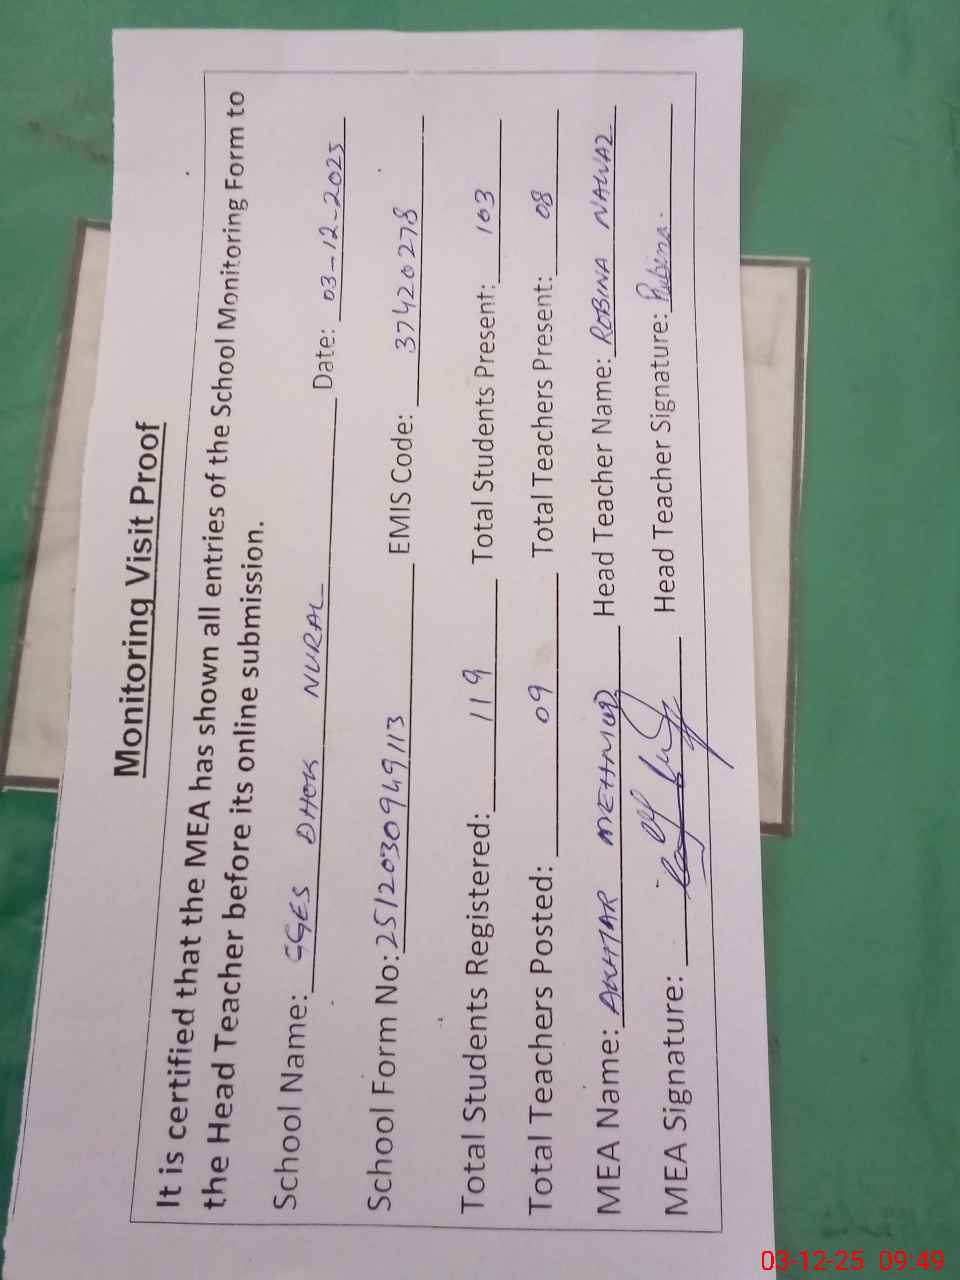 Monitoring Visit Proof
It is certified that the MEA has shown all entries of the School Monitoring Form to
the Head Teacher before its online submission.
School Name: GGES DHOK NURAL Date: 03-12-2025
School Form No: 2512030949113 EMIS Code: 37420278
Total Students Registered: 119 Total Students Present: 103
Total Teachers Posted: 09 Total Teachers Present: 08
MEA Name: AKHTAR MEHMOOD Head Teacher Name: ROBINA NAWAZ
MEA Signature: Head Teacher Signature: Rubina.
03-12-25 09:49